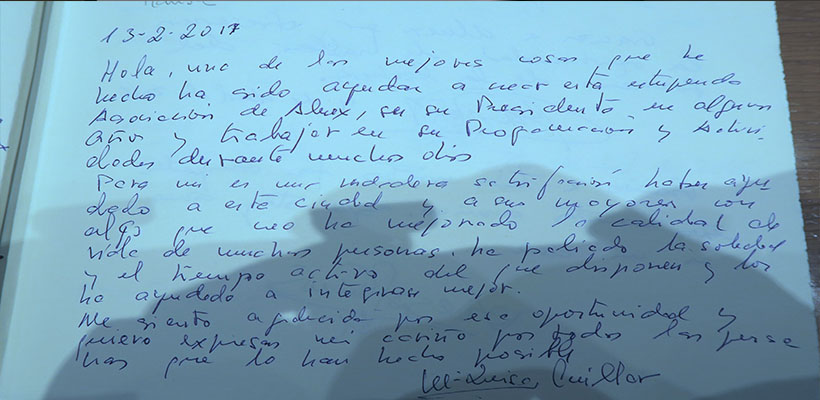 13-2-2017
Hola, una de las mejores cosas que he
hecho ha sido ayudar a crear esta estupenda
Asociación de ser su Presidenta en algunos
años y trabajar en su Programación y Activi-
dades durante muchos días
Para mi es una verdadera satisfacción haber ayu
dado a esta ciudad y a sus mayores con
algo que creo ha mejorado la calidad de
vida de muchas personas, ha paliado la soledad
y el tiempo activo del que disponen y los
ha ayudado a integrarse mejor.
Me siento agradecida por esa oportunidad y
quiero expresar mi cariño por todas las perso
nas que lo han hecho posible
Mª Luisa Cuillar